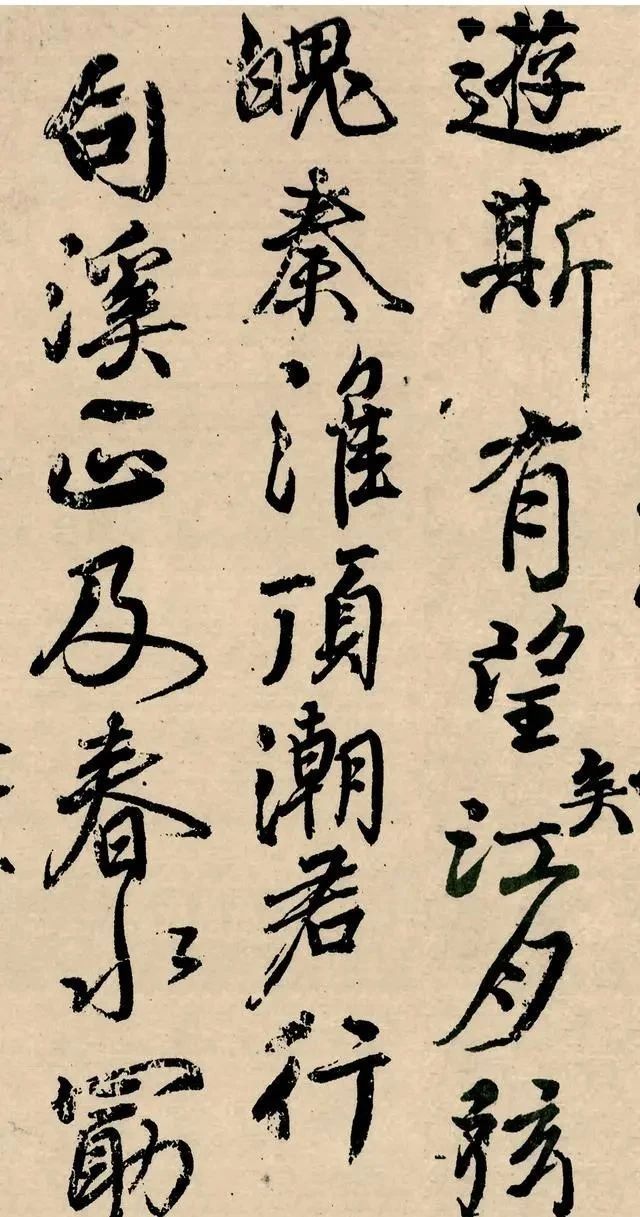 遊斯有望江月弦
矣
魄秦淮頂潮君行
句溪正及春水